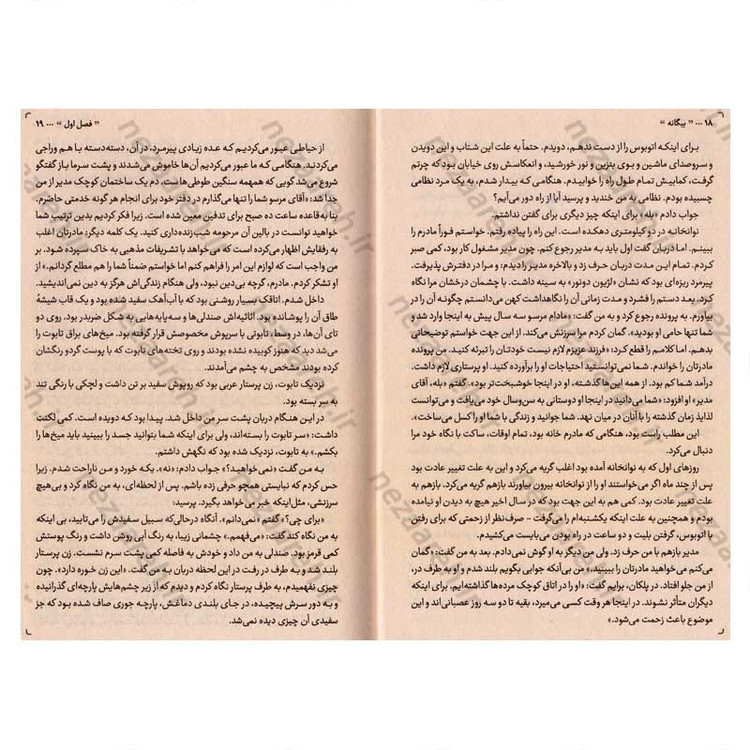 ۱۸ ... " بیگانه "
برای اینکه اتوبوس را از دست ندهم، دویدم. حتماً به علت این شتاب و این دویدن
و سروصدای ماشین و بوی بنزین و نور خورشید، و انعکاسش روی خیابان بود که چرتم
گرفت، کمابیش تمام طول راه را خوابیدم. هنگامی که بیدار شدم، به یک مرد نظامی
چسبیده بودم. نظامی به من خندید و پرسید آیا از راه دور می‌آیم؟
جواب دادم «بله» برای اینکه چیز دیگری برای گفتن نداشتم.
نوانخانه در دو کیلومتری دهکده است. این راه را پیاده رفتم. خواستم فوراً مادرم را
ببینم. اما دربان گفت اول باید به مدیر رجوع کنم. چون مدیر مشغول کار بود، کمی صبر
کردم. تمام این مدت دربان حرف زد و بالاخره مدیر را دیدم: و مرا در دفترش پذیرفت.
پیرمرد ریزه‌ای بود که نشان «لژیون دونور» به سینه داشت. با چشمان درخشان مرا نگاه
کرد. بعد دستم را فشرد و مدت زمانی آن را نگاهداشت کهن می‌دانستم چگونه آن را در
بیاورم. به پرونده رجوع کرد و به من گفت: «مادام مرسو سه سال پیش به اینجا وارد شد و
شما تنها حامی او بودید». گمان کردم مرا سرزنش می‌کند. از این جهت خواستم توضیحاتی
بدهم. اما کلامم را قطع کرد: «فرزند عزیزم لازم نیست خودتان را تبرئه کنید. من پرونده
مادرتان را خواندم. شما نمی‌توانستید احتیاجات او را برآورده کنید. او پرستاری لازم داشت.
درآمد شما کم بود. از همه این‌ها گذشته، او در اینجا خوشبخت‌تر بود». گفتم «بله، آقای
مدیر» او افزود: «شما می‌دانید در اینجا او دوستانی به سن‌وسال خود می‌یافت و می‌توانست
لذاید زمان گذشته را با آنان در میان نهد. شما جوانید و زندگی با شما او را کسل می‌ساخت».
این مطلب راست بود. هنگامی که مادرم خانه بود، تمام اوقات، ساکت با نگاه خود مرا
دنبال می‌کرد.
روزهای اول که به نوانخانه آمده بود اغلب گریه می‌کرد و این به علت تغییر عادت بود
پس از چند ماه اگر می‌خواستند او را از نوانخانه بیرون بیاورند بازهم گریه می‌کرد. بازهم به
علت تغییر عادت بود. کمی هم به این جهت بود که در سال اخیر هیچ به دیدن او نیامده
بودم و همچنین به علت اینکه یکشنبه‌ام را می‌گرفت - صرف‌نظر از زحمتی که برای رفتن
با اتوبوس، گرفتن بلیت و دو ساعت در راه بودن می‌بایست می‌کشیدم.
مدیر بازهم با من حرف زد، ولی من دیگر به او گوش نمی‌دادم. بعد به من گفت: «گمان
می‌کنم می‌خواهید مادرتان را ببینید.» من بی‌آنکه جوابی بگویم بلند شدم و او به طرف در،
از من جلو افتاد. در پلکان، برایم گفت: «او را در اتاق کوچک مرده‌ها گذاشته‌ایم. برای اینکه
دیگران متأثر نشوند. در اینجا هر وقت کسی می‌میرد، بقیه تا دو سه روز عصبانی‌اند و این
موضوع باعث زحمت می‌شود.»
" فصل اول " ... ۱۹
از حیاطی عبور می‌کردیم که عده زیادی پیرمرد، در آن، دسته‌دسته با هم وراجی
می‌کردند. هنگامی که ما عبور می‌کردیم آن‌ها خاموش می‌شدند و پشت سر ما باز گفتگو
شروع می‌شد گویی که همهمه سنگین طوطی‌ها است. دم یک ساختمان کوچک مدیر از من
جدا شد: «آقای مرسو شما را تنها می‌گذارم در دفتر خود برای انجام هر گونه خدمتی حاضرم.
بنا به قاعده ساعت ده صبح برای تدفین معین شده است. زیرا فکر کردیم بدین ترتیب شما
خواهید توانست در بالین آن مرحومه شب‌زنده‌داری کنید. یک کلمه دیگر: مادرتان اغلب
به رفقایش اظهار می‌کرده است که می‌خواهد با تشریفات مذهبی به خاک سپرده شود. بر
من واجب است که لوازم این امر را فراهم کنم اما خواستم ضمناً شما را هم مطلع گردانم.» از
او تشکر کردم. مادرم، گرچه بی‌دین نبود، ولی هنگام زندگی‌اش هرگز به دین نمی‌اندیشید.
داخل شدم. اتاقک بسیار روشنی بود که با آب‌آهک سفید شده بود و یک قاب شیشهٔ
طاق آن را پوشانده بود. اثاثیه‌اش صندلی‌ها و سه‌پایه‌هایی به شکل ضربدر بود. روی دو
تای آن‌ها، در وسط، تابوتی با سرپوش مخصوصش قرار گرفته بود. میخ‌های براق تابوت را
می‌شد دید که هنوز کوبیده نشده بودند و روی تخته‌های تابوت که با پوست گردو رنگشان
کرده بودند مشخص به چشم می‌آمدند.
نزدیک تابوت، زن پرستار عربی بود که روپوش سفید بر تن داشت و لچکی با رنگی تند
به سر بسته بود.
در این هنگام دربان پشت سر من داخل شد. پیدا بود که دویده است. کمی لکنت
داشت: «سر تابوت را بسته‌اند، ولی برای اینکه شما بتوانید جسد را ببینید باید میخ‌ها را
بکشم.» به تابوت، نزدیک شده بود که نگهش داشتم.
به من گفت «نمی‌خواهید؟» جواب دادم: «نه». یکه خورد و من ناراحت شدم. زیرا
حس کردم که نبایستی همچو حرفی زده باشم. پس از لحظه‌ای، به من نگاه کرد و بی‌هیچ
سرزنشی، مثل‌اینکه خبر می‌خواهد بگیرد. پرسید:
«برای چی؟» گفتم «نمی‌دانم». آنگاه درحالی‌که سبیل سفیدش را می‌تابید، بی آنکه
به من نگاه کند گفت: «می‌فهمم.» چشمانی زیبا، به رنگ آبی روشن داشت و رنگ پوستش
کمی قرمز بود. صندلی به من داد و خودش به فاصله کمی پشت سرم نشست. زن پرستار
بلند شد و به طرف در رفت در این لحظه دربان به من گفت: «این زن خوره دارد». چون
چیزی نفهمیدم، به طرف پرستار نگاه کردم و دیدم که از زیر چشم‌هایش پارچه‌ای گذرانیده
و به دور سرش پیچیده. در جای بلندی دماغش، پارچه جوری صاف شده بود که جز
سفیدی آن چیزی دیده نمی‌شد.
nezaareh.ir